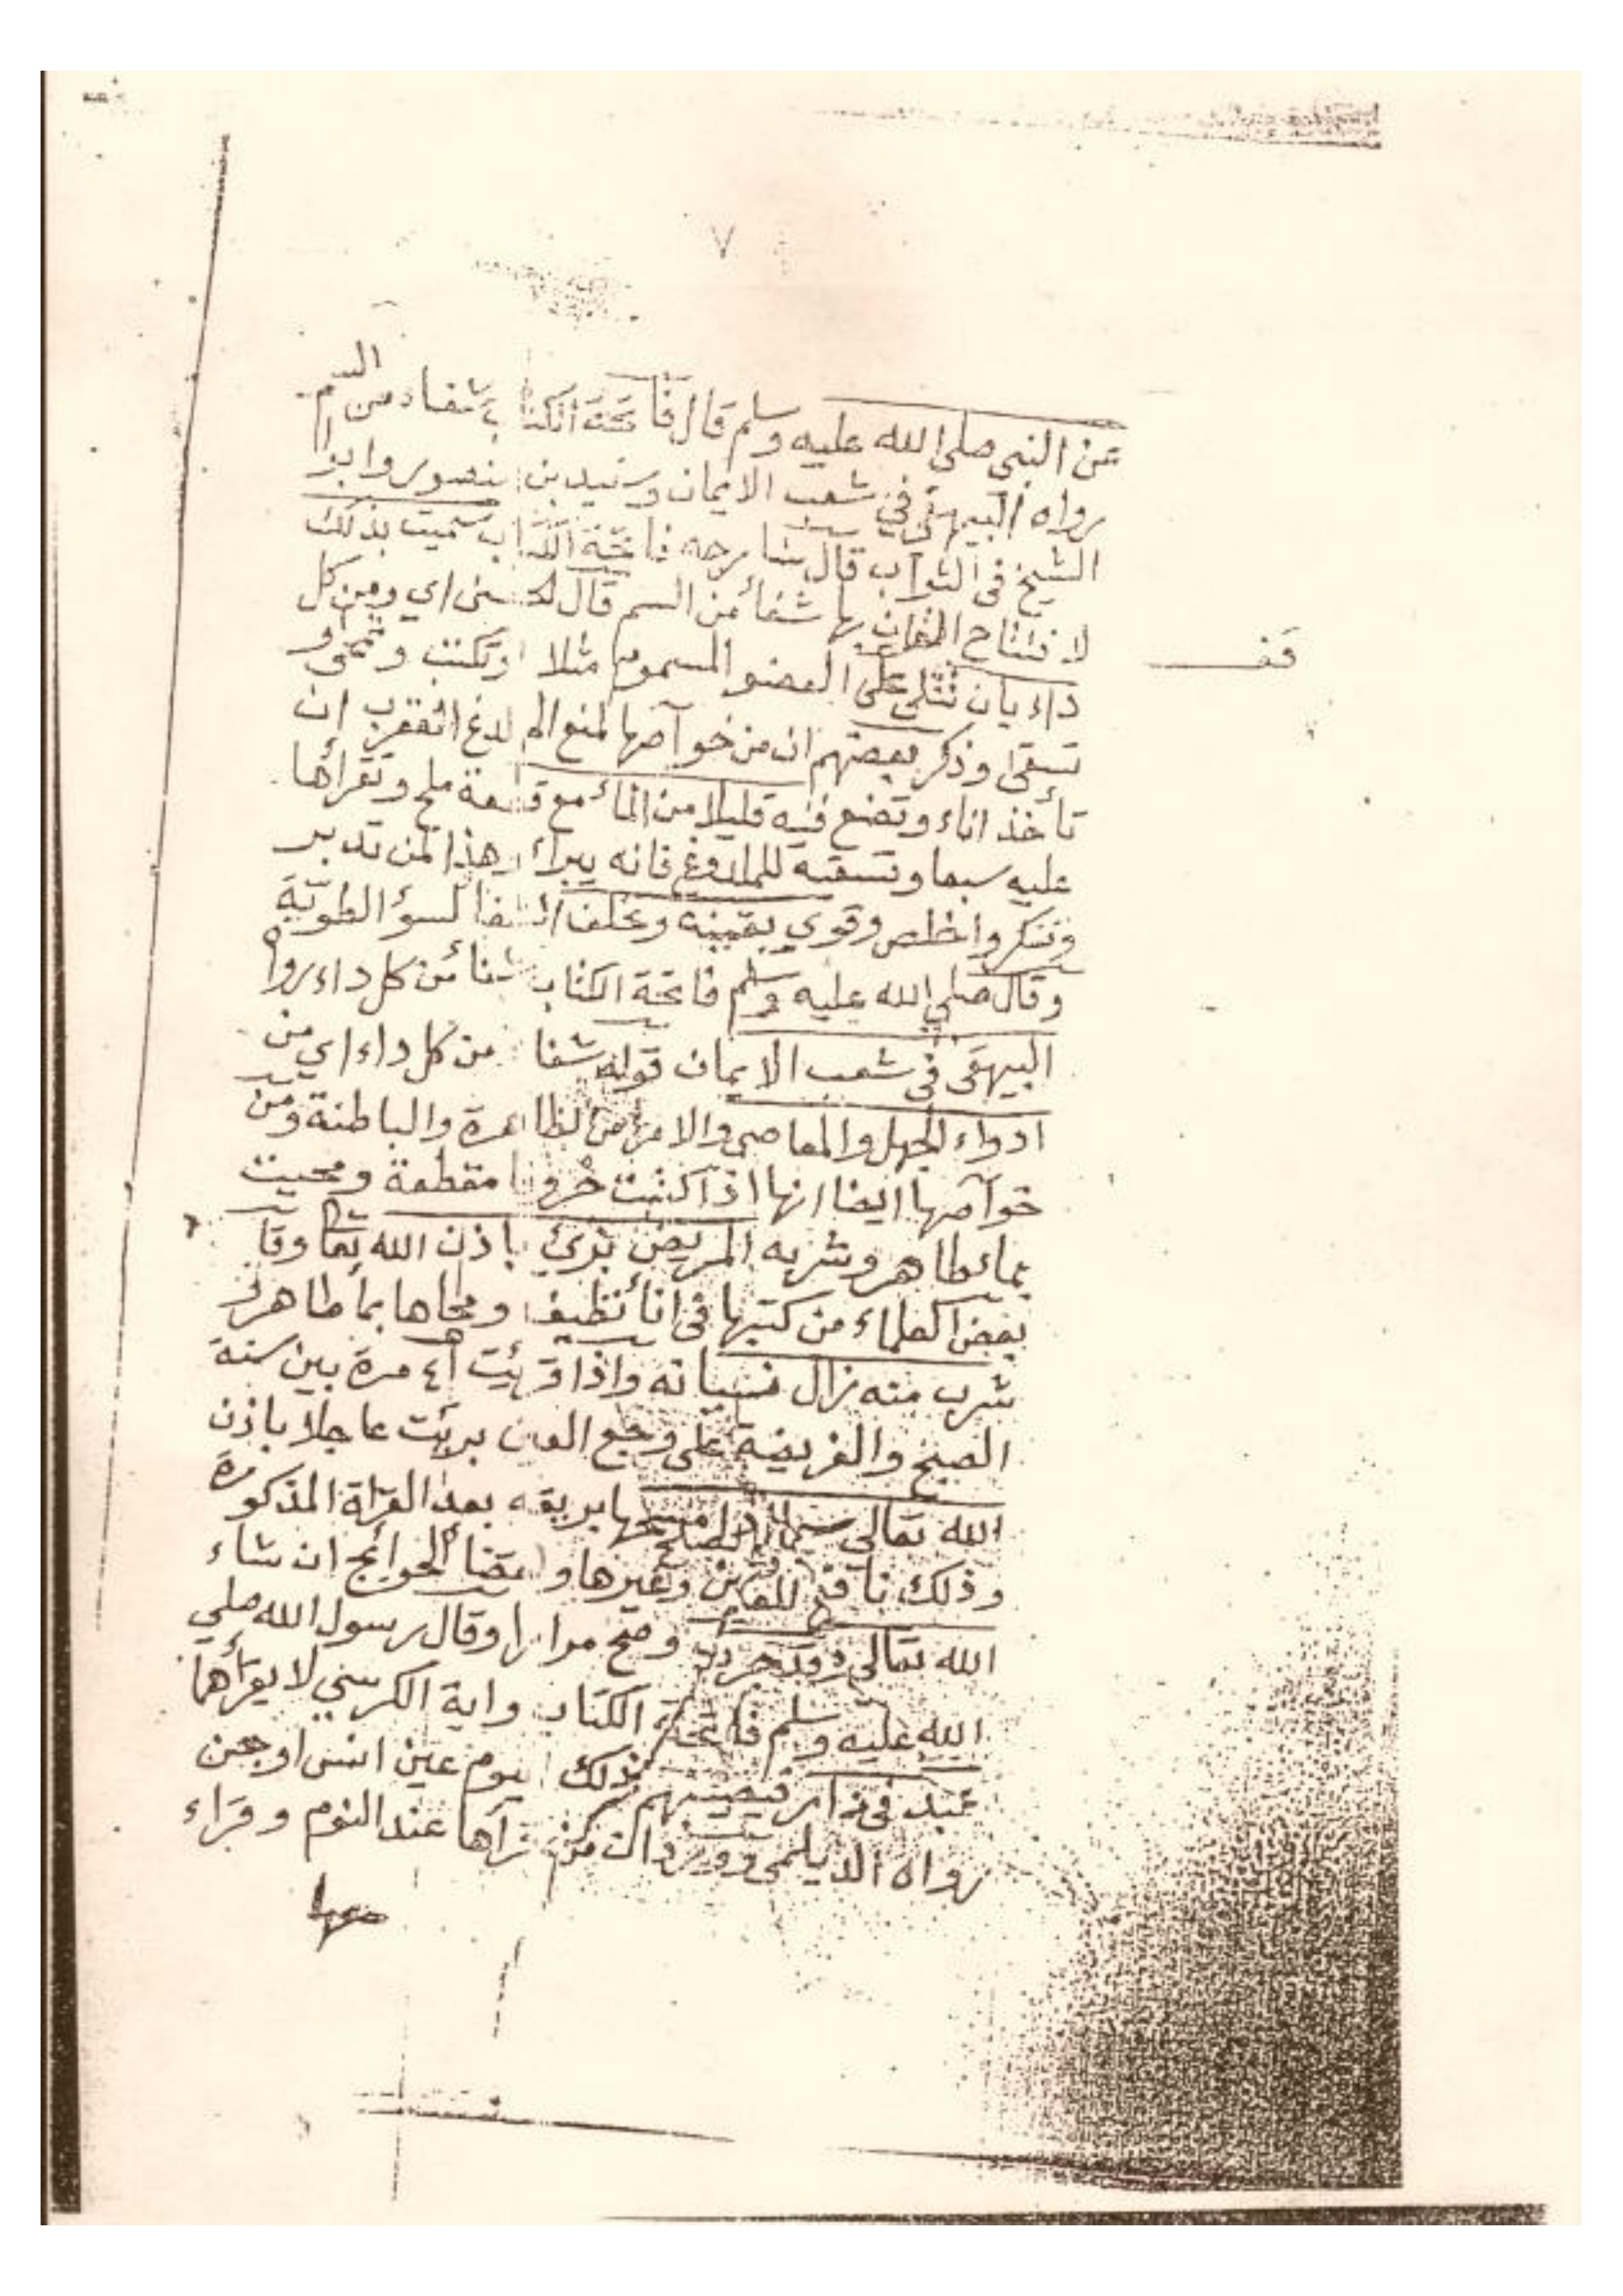 ٧
عن النبي صلى الله عليه وسلم قال فاتحة الكتاب شفاء من السم
رواه البيهقي في شعب الايمان وسعيد بن منصور وابوا
الشيخ في الثواب قال شارحه فاتحة الكتاب سميت بذلك
لافتتاح القرآن بها شفاء من السم قال اي ومن كل
قف
داء بان تتلى على العضو المسموم مثلا او تكتب وتمحى و
تسقى وذكر بعضهم ان من خواصها لمنع الم لدغ العقرب ان
تأخذ اناء وتضع فيه قليلا من الماء مع قطعة ملح وتقرأها
عليه سبعا وتسقيه للملدوغ فانه يبراء وهذا لمن تدبر
وتفكر واخلص وقوي يقينه وتخلف الشفا لسؤ الطوية
وقال صلى الله عليه وسلم فاتحة الكتاب شفاء من كل داء رواه
البيهقي في شعب الايمان قوله شفا من كل داء اي من
ادواء الجهل والمعاصي والامراض الظاهرة والباطنة ومن
خواصها ايضا انها اذا كتبت حروفا مقطعة ومحيت
بماء طاهر وشربه المريض برئ باذن الله تعا وقا
بعض العلماء من كتبها في اناء نظيف ومحاها بما طاهر و
شرب منه زال نسيانه واذا قريت ٤١ مرة بين سنة
الصبح والفريضة على وجع العين بريت عاجلا باذن
الله تعالى مسحها بريقه بعد القراة المذكورة
وذلك نافع للعين وغيرها و الحوائج ان شاء
الله تعالى وقد جرب وصح مرارا وقال رسول الله صلي
الله عليه وسلم فاتحة الكتاب واية الكرسي لا يقرأهما
عبد في دار فيصيبهم ذلك اليوم عين انس او جن
رواه الديلمي وورد ان من قرأها عند النوم وقراء
معها